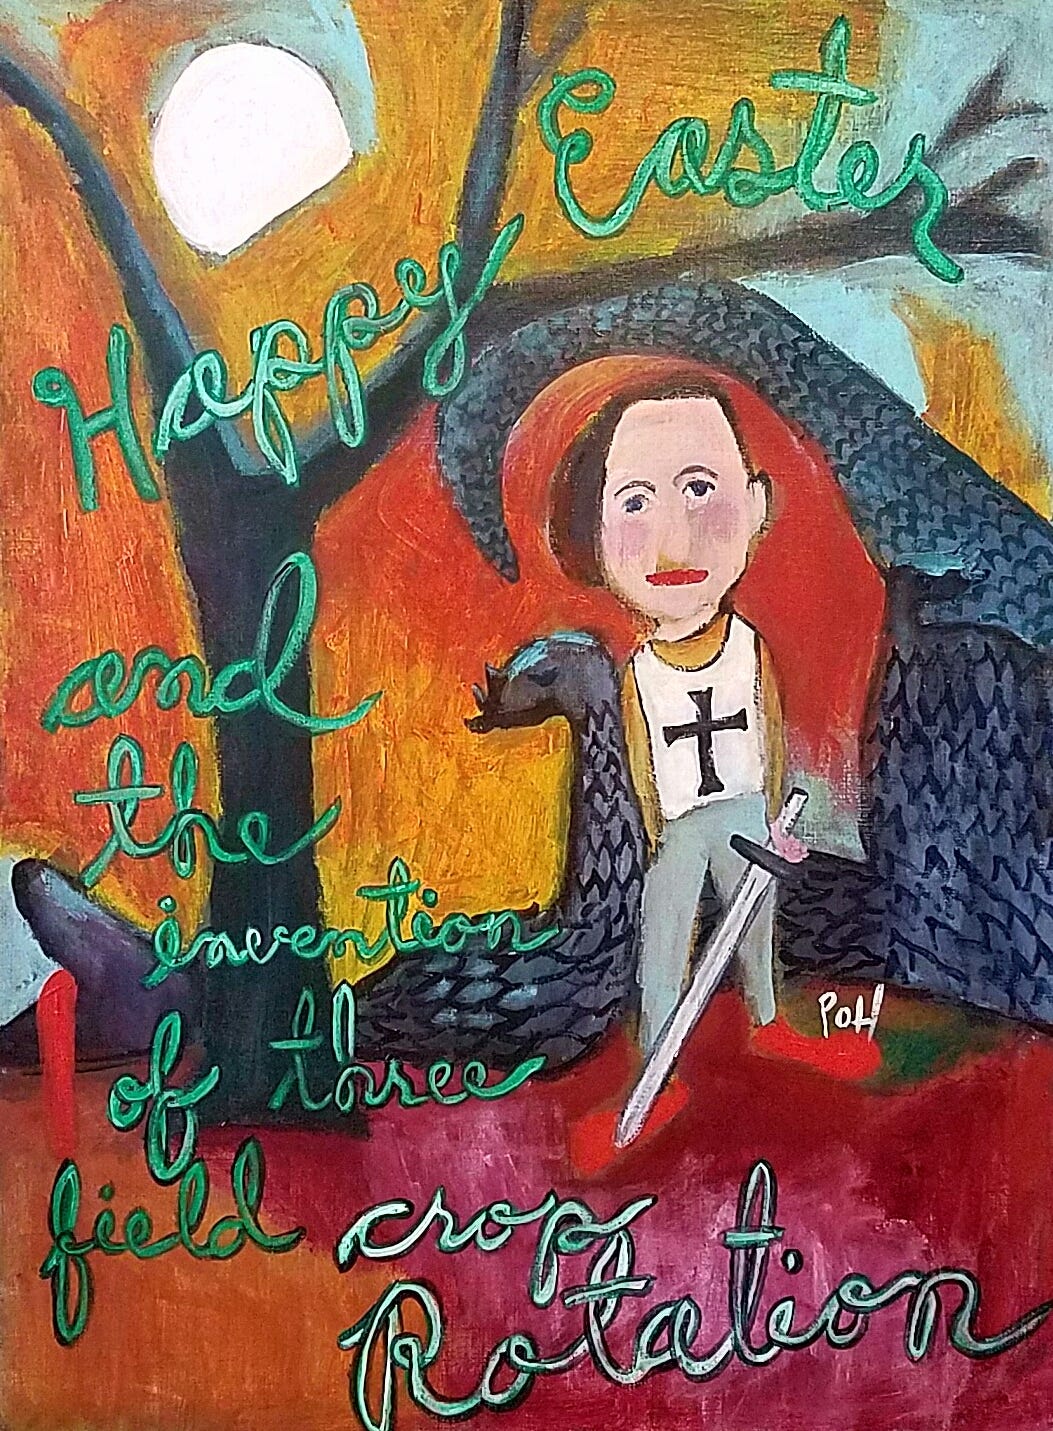 Happy Easter
and
the
invention
of three
field crop
Rotation
POH